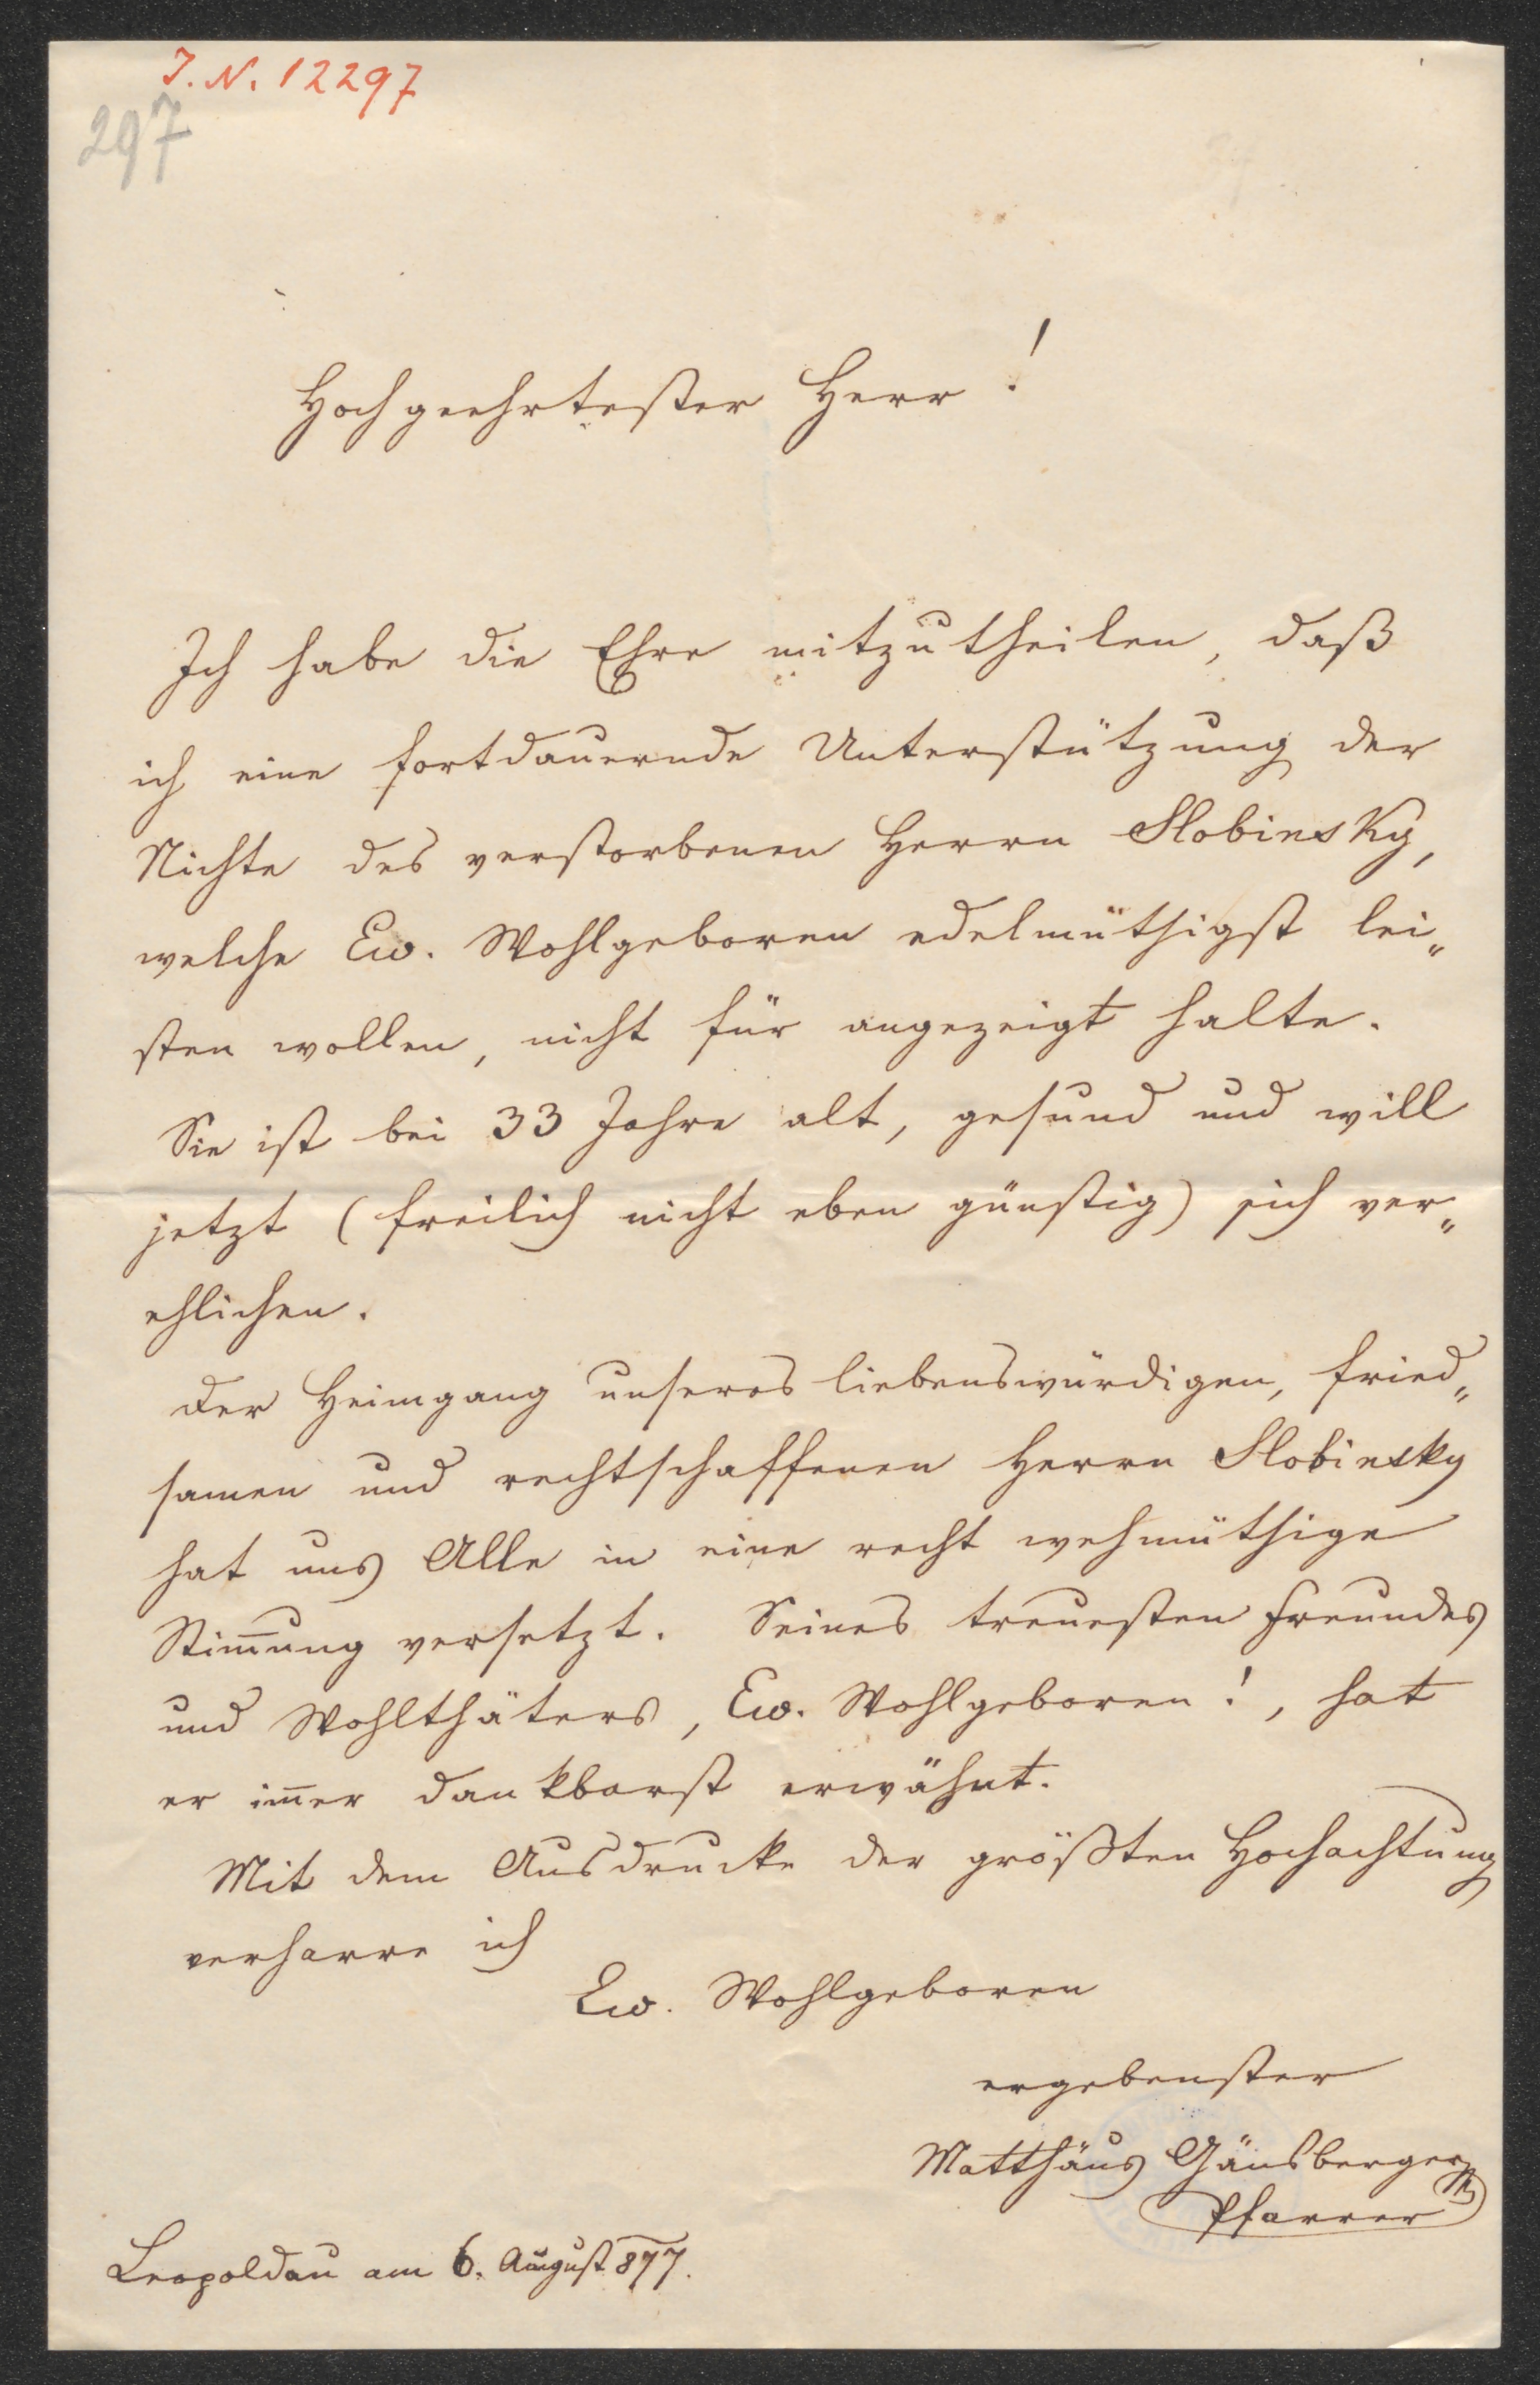 J. N. 12297
297
Hochgeehrtester Herr!
Ich habe die Ehre mitzutheilen, daß
ich eine fortdauernde Unterstützung der
Nichte des verstorbenen Herrn Slobinsky,
welche Ew. Wohlgeboren edelmüthigst lei„
sten wollen, nicht für angezeigt halte.
Sie ist bei 33 Jahre alt, gesund und will
jetzt (freilich nicht eben günstig) sich ver„
ehlichen.
Der Heimgang unseres liebenswürdigen, fried„
samen und rechtschaffenen Herrn Slobinsky
hat uns Alle in eine recht wehmüthige
Stim̅ung versetzt. Seines treuesten Freundes
und Wohlthäters, Ew. Wohlgeboren!, hat
er im̅er dankbarst erwähnt.
Mit dem Ausdrucke der größten Hochachtung
verharre ich
Ew. Wohlgeboren
ergebenster
Matthäus Gänsberger
Pfarrer
Leopoldau am 6. August 877.